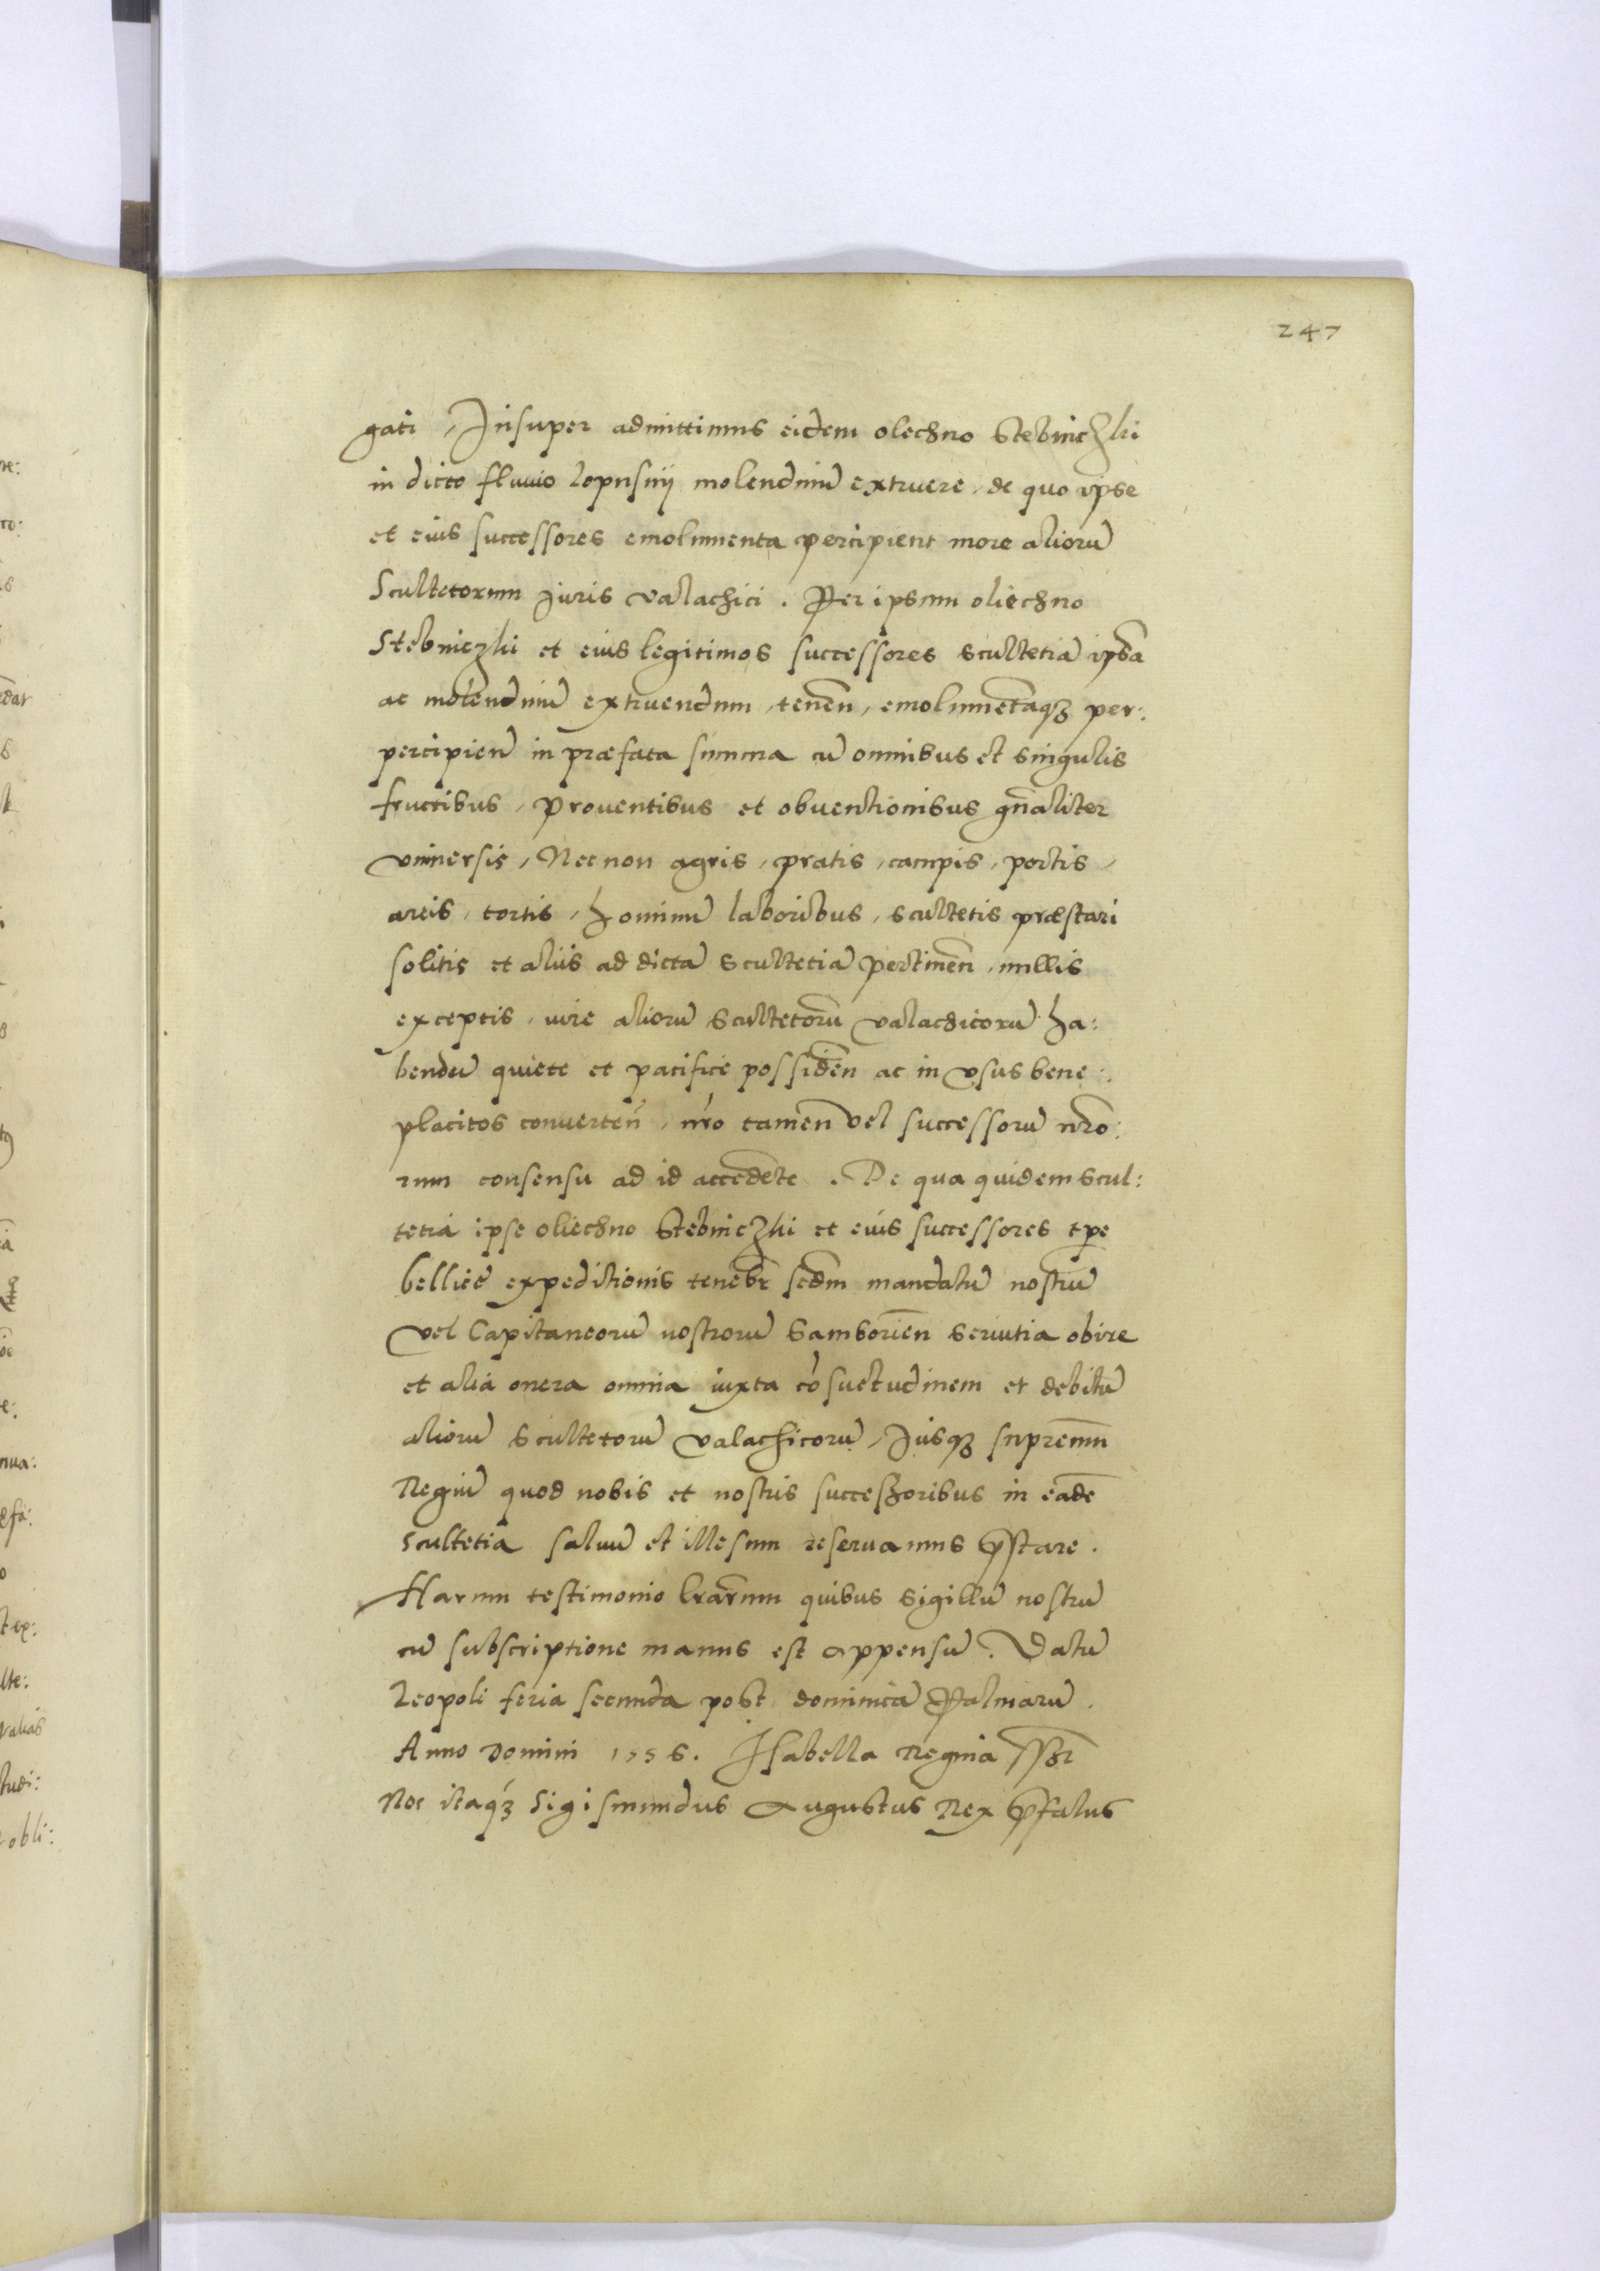 247
gati, Insuper admittimus eidem olechno Stebniczki
in dicto fluvio Lopusnij molendinū extruere, de quo ipse
et eius successores emolumenta percipient more aliorū
Scultetorum Juris valachici. Per ipsum oliechno
Stebniczki et eius legitimos successores scultetiā ipsā
ac molendinū extruendum, tenen̄, emolumētaqȝ per:
percipien̄ in præfata summa cū omnibus et singulis
fructibus, Proventibus et obventionibus gn̄aliter
vniversis, Nec non agris, pratis, campis, portis,
areis, tortis, hominū laboribus, scultetis præstari
solitis et aliis ad dictā scultetiā pertinen̄, nullis
exceptis, iure aliorū scultetorū valachicorū ha:
bendū quiete et pacifice possiden̄ ac in vsus bene:
placitos converten̄, nr̄o tamen vel successorū nr̄o:
rum consensu ad id accedēte. De qua quidem scul:
tetia ipse oliechno Stebniczki et eius successores tp̄e
bellicę expeditionis tenebr̄ scdm̄ mandatū nostrū
vel Capitaneorū nostrorū Samborien̄ servitia obire
et alia onera omnia iuxta cōsuetudinem et debitū
aliorū scultetorū valachicorū, Jusqȝ supremum
Regiū quod nobis et nostris successoribus in eadē
scultetia salvū et illesum reservamus p̄stare.
Harum testimonio lr̄arum quibus sigillū nostrū
cū subscriptione manus est appensū. Datū
Leopoli feria secunda post dominicā Palmarū.
Anno Domini 1556. Isabella Regina ss̄r̄
Nos itaqȝ Sigismundus Augustus Rex p̄fatus